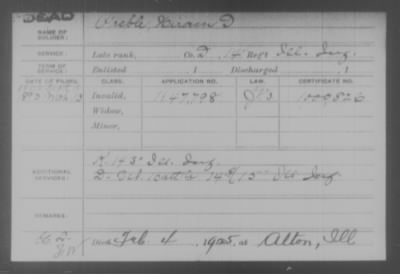 DEAD
NAME OF SOLDIER: Preble, Hiram D
SERVICE: Late rank, Co. D, 14 Reg't Ill. Inf.
TERM OF SERVICE: Enlisted , 1 Discharged , 1
DATE OF FILING. CLASS. APPLICATION NO. LAW. CERTIFICATE NO.
Invalid, 1147,798 1008826
Widow,
Minor,
ADDITIONAL SERVICES: K. 143" Ill. Inf.
D. Ill. Inf.
REMARKS:
Died Feb 4, 1925, at Alton, Ill